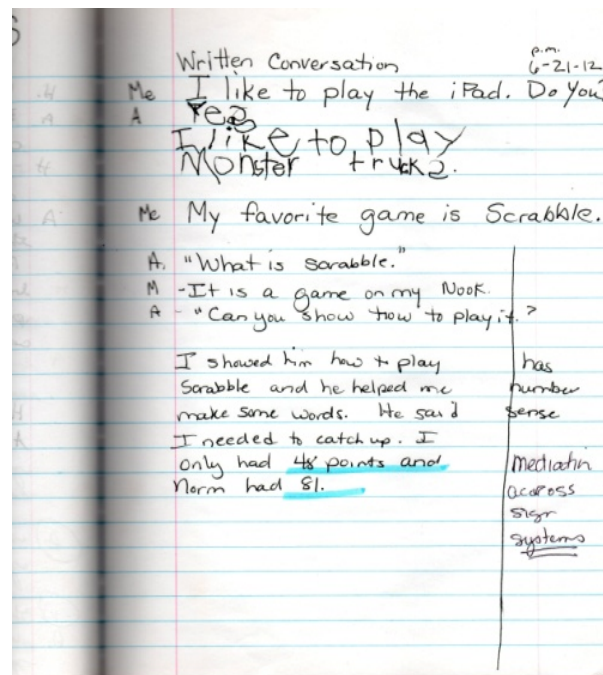 Written Conversation
p.m.
6-21-12
Me I like to play the iPad. Do You
A Yes
I like to play
Monster truck 2.
Me My favorite game is Scrabble.
A. "What is scrabble."
M - It is a game on my Nook.
A - "Can you show how to play it."?
I showed him how to play
Scrabble and he helped me
make some words. He said
I needed to catch up. I
only had 48 points and
Norm had 81.
has
number
sense
mediation
across
sign
systems